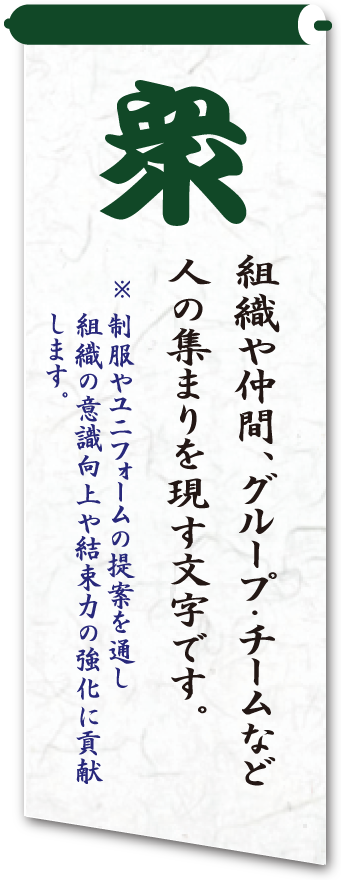 衆
組織や仲間、グループ・チームなど
人の集まりを現す文字です。
※ 制服やユニフォームの提案を通し
組織の意識向上や結束力の強化に貢献
します。